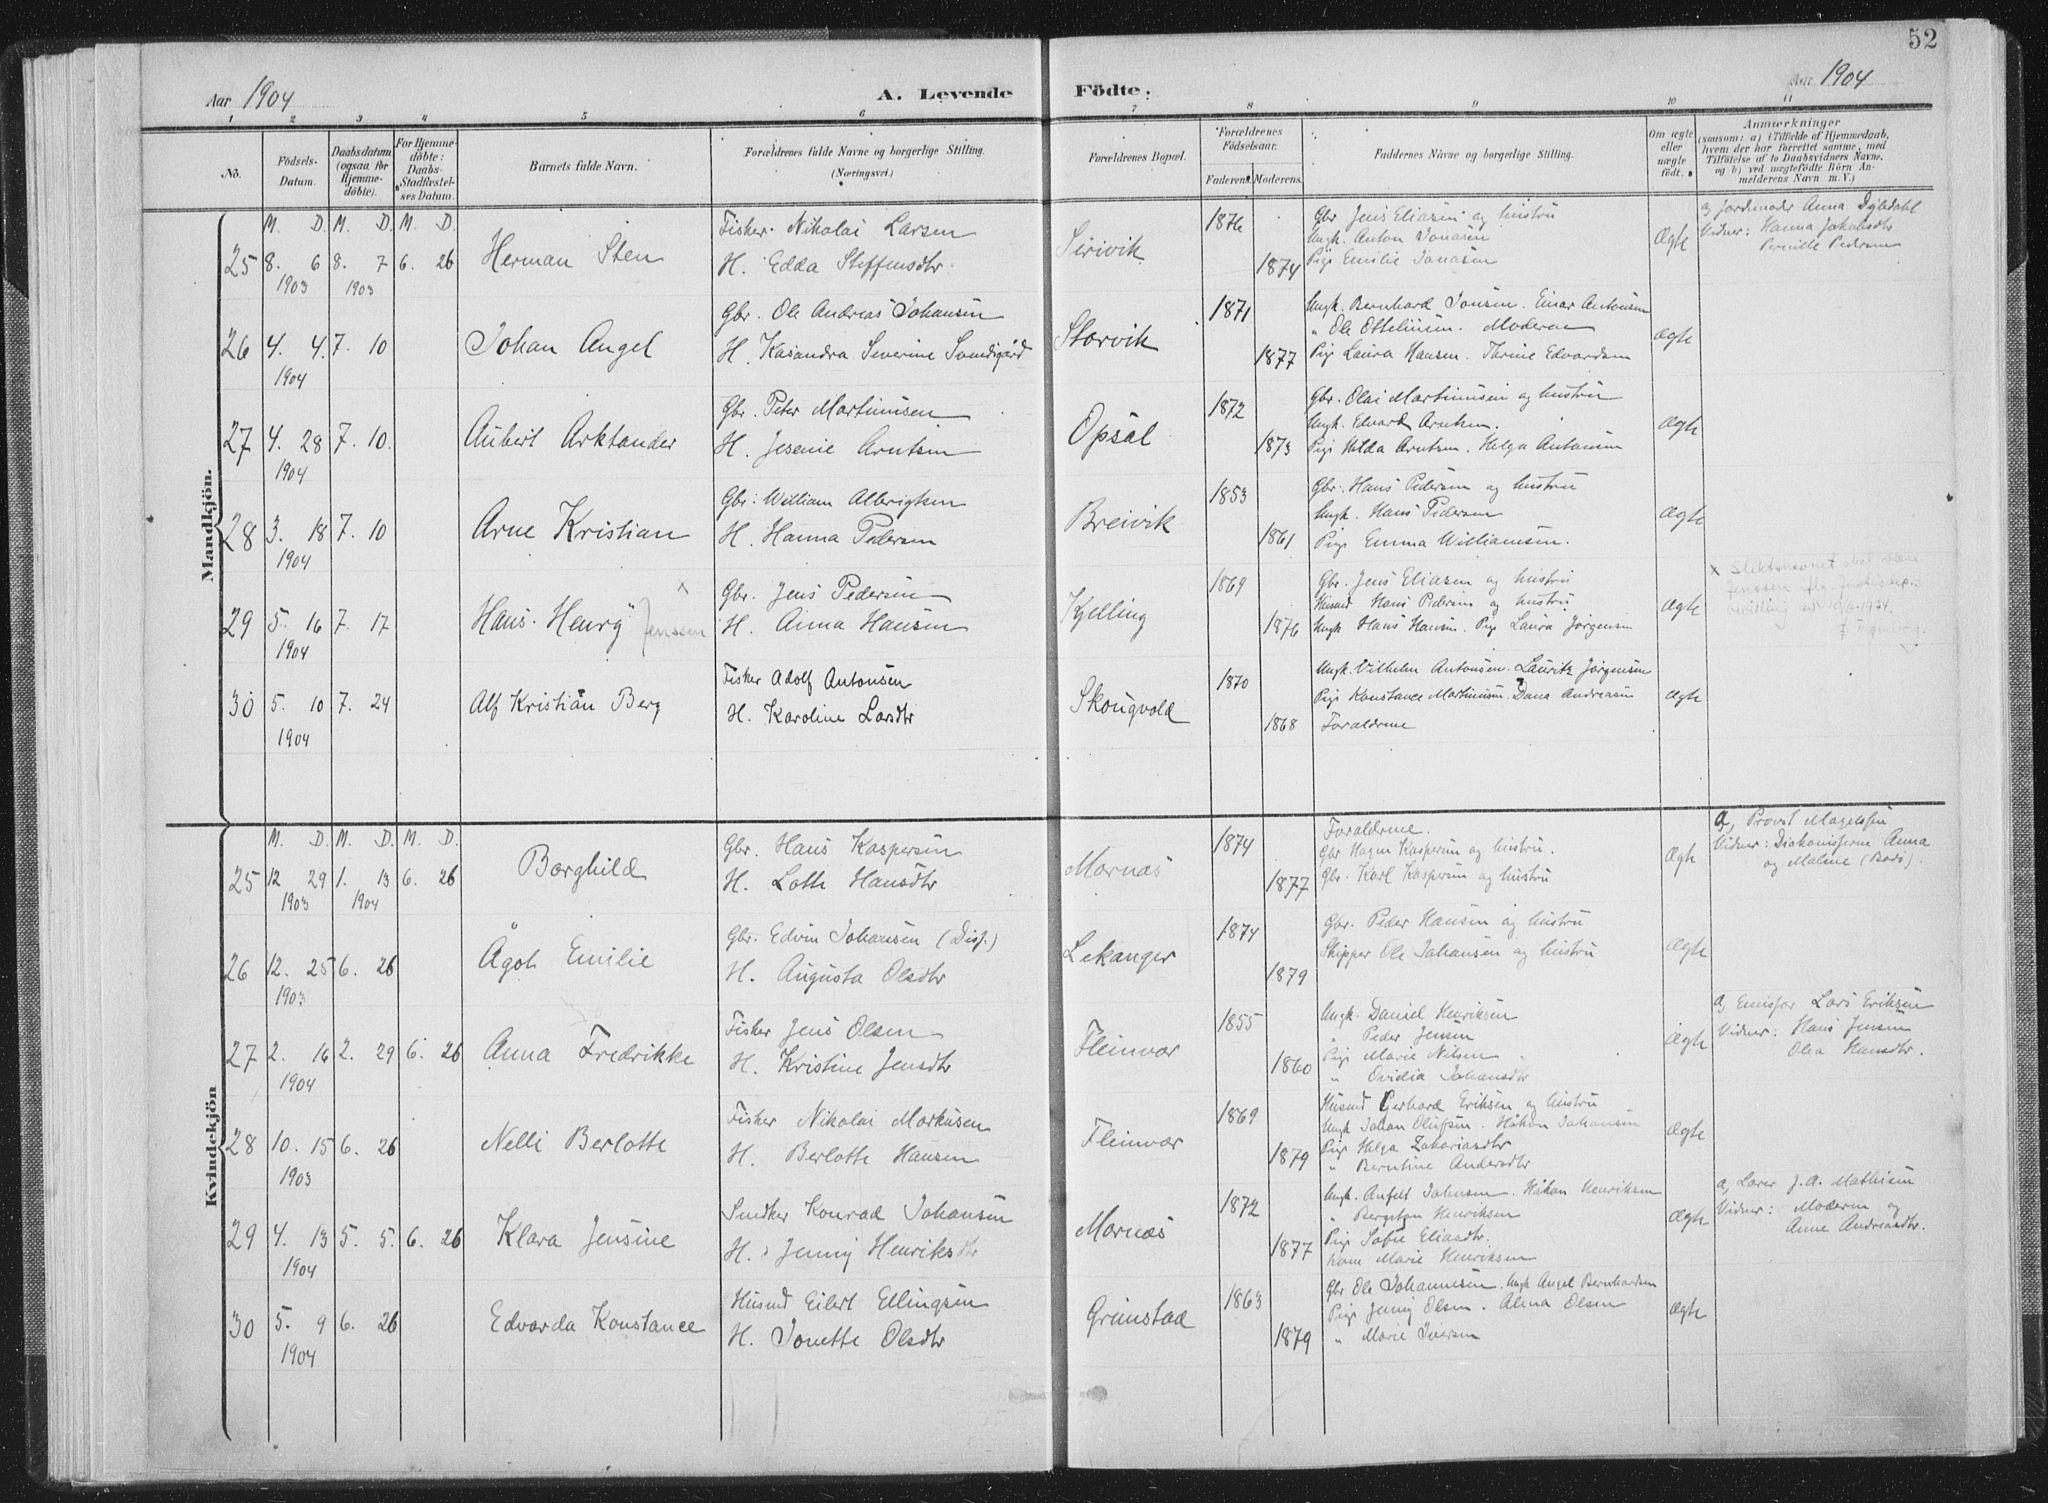 52
Aar 1904
A. Levende
Födte.
Aar 1904
1 2 3 4 5 6 7 8 9 10 11
No.
Födsels-Datum.
Daabsdatum (ogsaa for Hjemme-döbte).
For Hjemme-döbte: Daabs-Stadfæstel-ses Datum.
Barnets fulde Navn.
Forældrenes fulde Navne og borgerlige Stilling. (Næringsvei.)
Forældrenes Bopæl.
Forældrenes Födselsaar.
Faderens. Moderens.
Faddernes Navne og borgerlige Stilling.
Om ægte eller uægte födt.
Anmærkninger
(saasom: a) i Tilfælde af Hjemmedaab, hvem der har forrettet samme, med Tilföielse af to Daabsvidners Navne, og b) ved uægtefödte Börn An-melderens Navn m. V.)
Mandkjön.
M. D. M. D. M. D.
25 8. 6 1903 8. 7 1903 6. 26
Herman Sten
Fisker Nikolai Larsen
H. Edda Steffensdtr.
Seivik
1876
1874
Gbr. Jens Eliasen og hustru
Ungk. Anton Jonasen
Pige Emilie Jonasen
Ægte
a, Jordmoder Anna
Vidner: Hanna Jakobsdtr
Pernille Pedersen
26 4. 4. 1904 7. 10
Johan Angel
Gbr. Ole Andreas Johansen
H. Kasandra Severine
Storvik
1871
1877
Ungk. Bernhard Jonsen. Einar Antonsen
" Ole Ottelinsen. Moderen
Pige Laura Hansen. Thrine Edvardsen
ægte
27 4. 28 1904 7. 10.
Aubert Arktander
Gbr. Peter Martinusen
H. Jesenie Arntsen
Opsal
1872
1873
Gbr. Olai Martinusen og hustru
Ungk. Edvard Arntsen.
Pige Hilda Arntsen. Helga Antonsen
ægte
28 3. 18 1904 7. 10
Arne Kristian
Gbr. William Albrigtsen
H. Hanna Pedersen
Breivik
1853
1861
Gbr. Hans Pedersen og hustru
Ungk. Hans Pedersen
Pige Emma Williamsen.
ægte
29 5. 16 1904 7. 17
Hans Henry Jenssen x
Gbr. Jens Pedersen
H. Anna Hansen
Kjelling
1869
1876
Gbr. Jens Eliasen og hustru
Husmd Hans Pedersen og hustru
Ungk Hans Hansen. Pige Laura Jørgensen
ægte
x Slektsnavnet skal være
Jenssen
30 5. 10 1904 7. 24
Alf Kristian Berg
Fisker Adolf Antonsen
H. Karoline Larsdtr
Skougvold
1870
1868
Ungk. Vilhelm Antonsen. Lauritz Jørgensen
Pige Konstance Martinusen. Dana Andreasen
Forældrene
ægte
Kvindekjön
M. D. M. D. M. D.
25 12 29 1903 1. 13 1904 6. 26
Borghild
Gbr. Hans Kaspersen
H. Lotte Hansdtr
Mornæs
1874
1877
Forældrene.
Gbr Hagen Kaspersen og hustru.
Gbr. Karl Kaspersen og hustru
ægte
a, Provst Magelssen
Vidner: Diakonisserne Anna
og Maline (Bodø).
26 12. 25 1903 6. 26
Ågot Emilie
Gbr. Edvin Johansen (Diss.)
H. Augusta Olsdtr
Lekanger
1874
1879
Gbr. Peder Hansen og hustru
Skipper Ole Johansen og hustru
ægte
27 2. 16 1904 2. 29 6. 26
Anna Fredrikke
Fisker Jens Olsen
H. Kristine Jensdtr
Fleinvær
1855
1860
Ungk. Daniel Henriksen
" Peder Jensen
Pige Marie Nilsen
" Ovidia Johansdtr
ægte
a, Emissær Lars Eriksen
Vidner: Hans Jensen
Olea Hansdtr.
28 10. 15 1903 6. 26
Nelli Berlotte
Fisker Nikolai Markusen
H. Berlotte Hansen
Fleinvær
1869
1879
Husmd Gerhard Eriksen og hustru
Ungk Johan Olufsen. Håkon Johansen
Pige Helga Zakariasdtr
" Berntine Andersdtr
ægte
29 4. 13 1904 5. 5. 6. 26
Klara Jensine
Snedker Konrad Johansen
H. Jenny Henriksdtr
Mornæs
1872
1877
Ungk. Anfelt Johnsen. Håkon Henriksen
" Bergiton Henriksen
Pige Sofie Eliasdtr.
Kone Marie Henriksen
ægte
a, Lærer J. A. Mathisen
Vidner: Moderen og
Anne Andreasdtr.
30 5. 9 1904 6. 26
Edvarda Konstance
Husmd Eilert Ellingsen
H. Jonette Olsdtr
Grimstad
1863
1879
Gbr Ole Johannesen. Ungk Angel Bernhardsen
Pige Jenny Olsen. Alma Olsen
" Marie Iversen
ægte